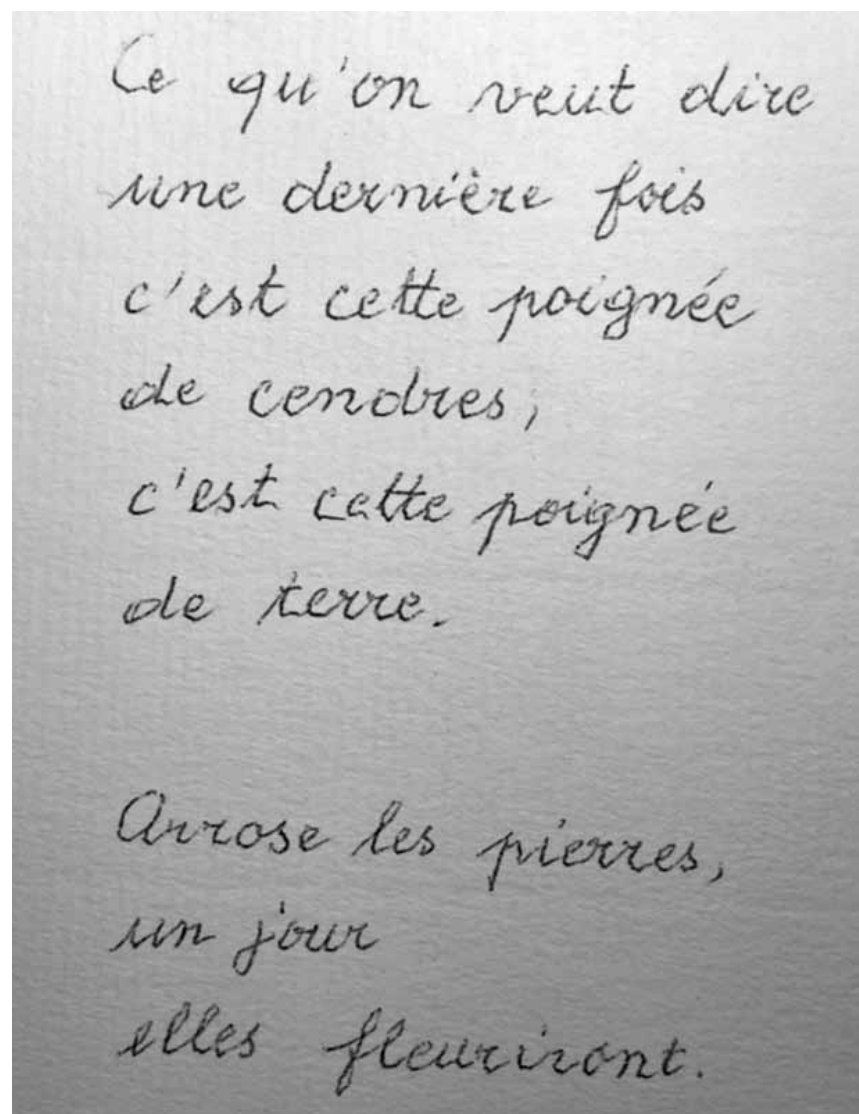 Ce qu'on veut dire
une dernière fois
c'est cette poignée
de cendres,
c'est cette poignée
de terre.
Arrose les pierres,
un jour
elles fleuriront.